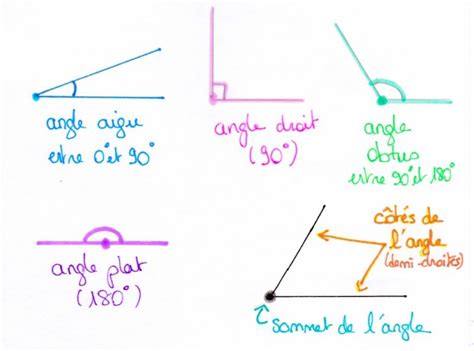 angle aigu
entre 0° et 90°
angle droit
(90°)
angle
obtus
entre 90° et 180°
angle plat
(180°)
côtés de
l'angle
(demi-droites)
sommet de l'angle